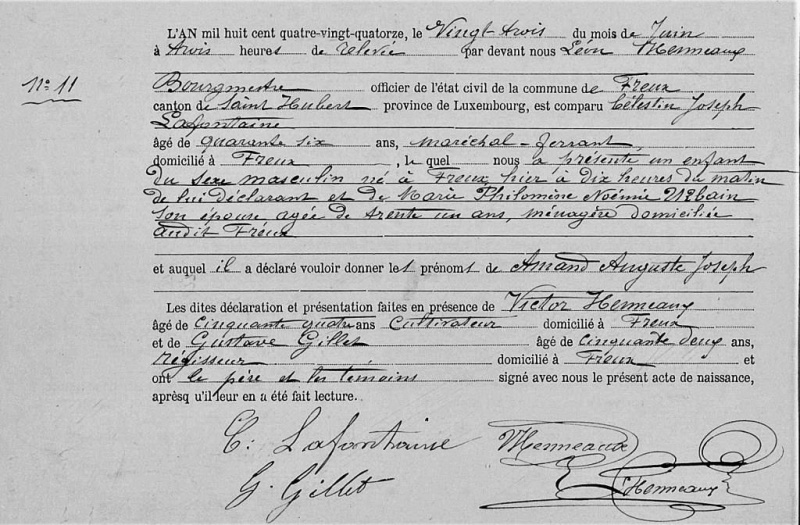 L'AN mil huit cent quatre-vingt-quatorze, le Vingt trois du mois de Juin
à trois heures de relevée par devant nous Léon Henneaux
N° 11
Bourgmestre officier de l'état civil de la commune de Freux
canton de Saint Hubert province de Luxembourg, est comparu Célestin Joseph
Lafontaine
âgé de quarante six ans, maréchal-ferrant,
domicilié à Freux, le quel nous a présenté un enfant
du sexe masculin né à Freux hier à dix heures du matin
de lui déclarant et de Marie Philomène Noémie Urbain
son épouse, agée de trente un ans, ménagère domiciliée
audit Freux
et auquel il a déclaré vouloir donner les prénoms de Amand Auguste Joseph
Les dites déclaration et présentation faites en présence de Victor Henneaux
âgé de cinquante quatre ans Cultivateur domicilié à Freux
et de Gustave Gillet âgé de cinquante deux ans,
régisseur domicilié à Freux et
ont le père et les témoins signé avec nous le présent acte de naissance,
aprèsq u'il leur en a été fait lecture.
C: Lafontaine VHenneaux
G. Gillet LHenneaux